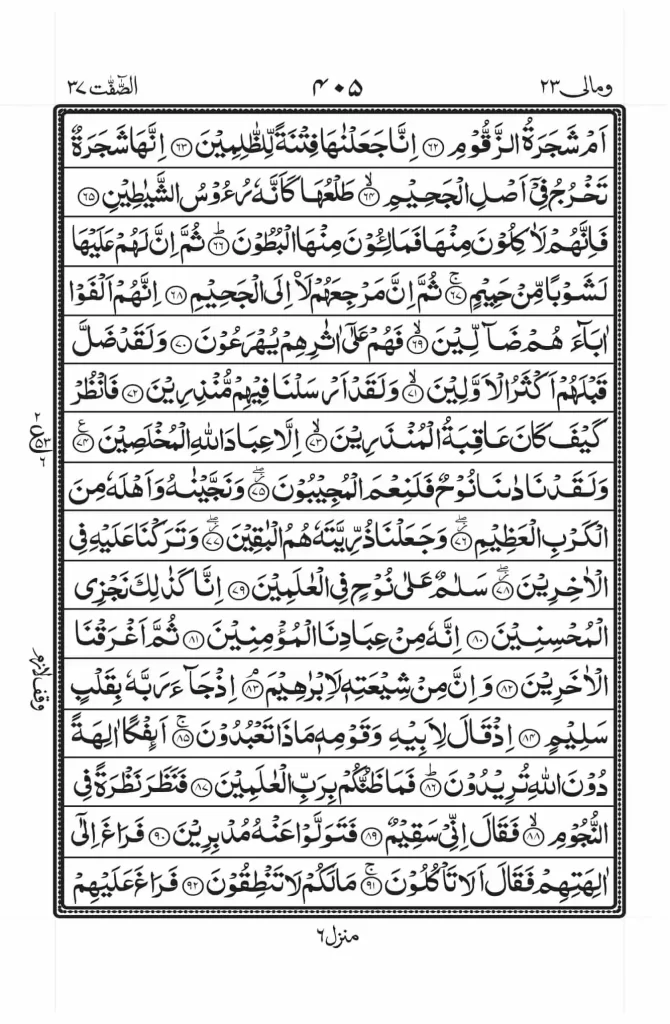 ومالی ۲۳
۴۰۵
الصّٰٓفّٰت ۳۷
اَمۡ شَجَرَةُ الزَّقُّوۡمِ ﴿۶۲﴾ اِنَّا جَعَلۡنٰهَا فِتۡنَةً لِّلظّٰلِمِيۡنَ ﴿۶۳﴾ اِنَّهَا شَجَرَةٌ
تَخۡرُجُ فِىۡۤ اَصۡلِ الۡجَحِيۡمِۙ ﴿۶۴﴾ طَلۡعُهَا كَاَنَّهٗ رُءُوۡسُ الشَّيٰطِيۡنِ ﴿۶۵﴾
فَاِنَّهُمۡ لَاٰكِلُوۡنَ مِنۡهَا فَمَالِــُٔوۡنَ مِنۡهَا الۡبُطُوۡنَؕ ﴿۶۶﴾ ثُمَّ اِنَّ لَهُمۡ عَلَيۡهَا
لَشَوۡبًا مِّنۡ حَمِيۡمٍۚ ﴿۶۷﴾ ثُمَّ اِنَّ مَرۡجِعَهُمۡ لَا۟اِلَى الۡجَحِيۡمِ ﴿۶۸﴾ اِنَّهُمۡ اَلۡفَوۡا
اٰبَآءَ هُمۡ ضَآلِّيۡنَۙ ﴿۶۹﴾ فَهُمۡ عَلٰٓى اٰثٰرِهِمۡ يُهۡرَعُوۡنَ ﴿۷۰﴾ وَلَـقَدۡ ضَلَّ
قَبۡلَهُمۡ اَكۡثَرُ الۡاَوَّلِيۡنَۙ ﴿۷۱﴾ وَلَقَدۡ اَرۡسَلۡنَا فِيۡهِمۡ مُّنۡذِرِيۡنَ ﴿۷۲﴾ فَانْظُرۡ
كَيۡفَ كَانَ عَاقِبَةُ الۡمُنۡذَرِيۡنَۙ ﴿۷۳﴾ اِلَّا عِبَادَ اللّٰهِ الۡمُخۡلَصِيۡنَ ﴿۷۴﴾ ع
۲
ع
۵۳
۶
وَلَقَدۡ نَادٰٮنَا نُوۡحٌ فَلَنِعۡمَ الۡمُجِيۡبُوۡنَ ۖ ﴿۷۵﴾ وَنَجَّيۡنٰهُ وَاَهۡلَهٗ مِنَ
الۡكَرۡبِ الۡعَظِيۡمِ ۖ ﴿۷۶﴾ وَجَعَلۡنَا ذُرِّيَّتَهٗ هُمُ الۡبٰقِيۡنَ ۖ ﴿۷۷﴾ وَتَرَكۡنَا عَلَيۡهِ فِى
الۡاٰخِرِيۡنَ ۖ ﴿۷۸﴾ سَلٰمٌ عَلٰى نُوۡحٍ فِى الۡعٰلَمِيۡنَ ﴿۷۹﴾ اِنَّا كَذٰلِكَ نَجۡزِى
الۡمُحۡسِنِيۡنَ ﴿۸۰﴾ اِنَّهٗ مِنۡ عِبَادِنَا الۡمُؤۡمِنِيۡنَ ﴿۸۱﴾ ثُمَّ اَغۡرَقۡنَا
الۡاٰخَرِيۡنَ ﴿۸۲﴾ وَاِنَّ مِنۡ شِيۡعَتِهٖ لَاِبۡرٰهِيۡمَۘ ﴿۸۳﴾ اِذۡ جَآءَ رَبَّهٗ بِقَلۡبٍ
وقف لازم
سَلِيۡمٍ ﴿۸۴﴾ اِذۡ قَالَ لِاَبِيۡهِ وَقَوۡمِهٖ مَاذَا تَعۡبُدُوۡنَۚ ﴿۸۵﴾ اَٮِٕفۡكًا اٰلِهَةً
دُوۡنَ اللّٰهِ تُرِيۡدُوۡنَؕ ﴿۸۶﴾ فَمَا ظَنُّكُمۡ بِرَبِّ الۡعٰلَمِيۡنَ ﴿۸۷﴾ فَنَظَرَ نَظۡرَةً فِى
النُّجُوۡمِۙ ﴿۸۸﴾ فَقَالَ اِنِّىۡ سَقِيۡمٌ ﴿۸۹﴾ فَتَوَلَّوۡا عَنۡهُ مُدۡبِرِيۡنَ ﴿۹۰﴾ فَرَاغَ اِلٰٓى
اٰلِهَتِهِمۡ فَقَالَ اَلَا تَاۡكُلُوۡنَۚ ﴿۹۱﴾ مَا لَكُمۡ لَا تَنۡطِقُوۡنَ ﴿۹۲﴾ فَرَاغَ عَلَيۡهِمۡ
منزل ۶